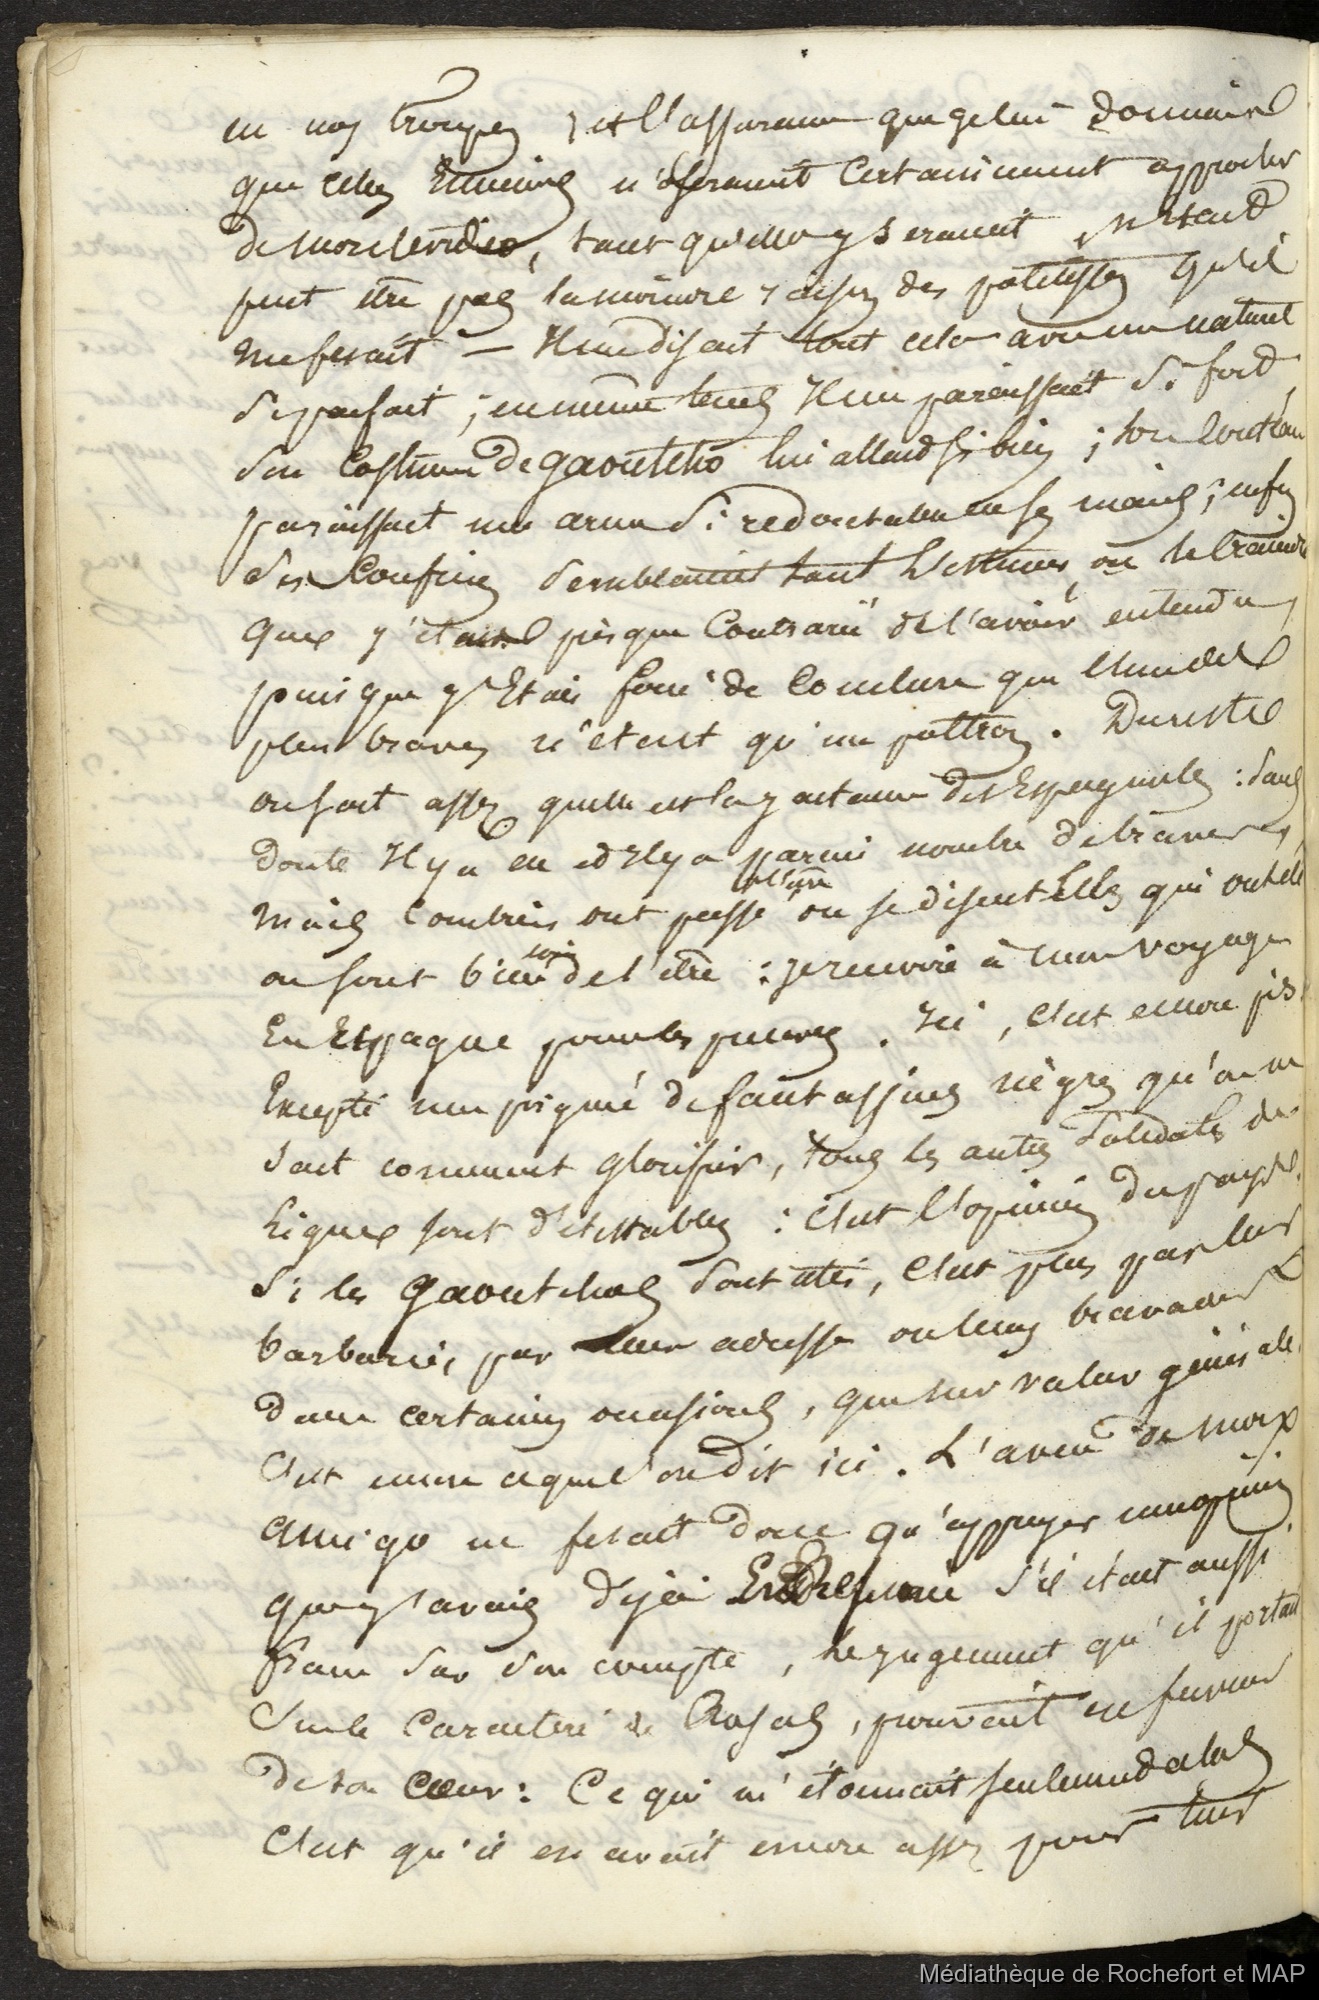 en nos troupes, et l'assurance que je lui donnais
que celles ennemies n'oseraient certainement approcher
de montevideo, tant qu'elles y seraient, n'étaient
peut être pas la moindre raison des politesses qu'il
me fesait — Il me disait tout cela avec un naturel
si parfait ; en même temps Il me paraissait si fort,
son Costume de gaoutcho lui allait si bien ; son Couteau
paraissait une arme si redoutable en ses mains ; enfin
ses Confrères semblaient tant l'estimer, ou le craindre
que j'étais presque Contrarié de l'avoir entendu,
puisque j'étais forcé de Conclure que l'un des
plus braves n'était qu'un poltron. Du reste
on sait assez quelle est la jactance des Espagnols : sans
doute Il y a eu et Il y a parmi nombre de braves,
mais Combien ont passé pour l'être ou se disent tels qui ont été
ou sont bien loin de l'être : je renvoie à mon voyage
En Espagne pour les preuves. Ici, c'est encore pis.
Excepté une poignée de fantassins nègres qu'on ne
sait comment glorifier, tous les autres soldats de
Ligne sont détestables : c'est l'opinion du pays.
Si les gaoutchos sont cités, c'est plus par leur
barbarie, par leur adresse ou leurs bravades
dans certaines occasions, que leur valeur générale.
C'est encore ce que l'on dit ici. L'aveu de mon
amigo ne fesait donc qu'appuyer mon opinion
que j'avais déjà s'il était aussi
franc sur son compte, le jugement qu'il portait
Sur le Caractère de Rosas, prouvait en faveur
de son Cœur : Ce qui m'étonnait seulement alors
C'est qu'il en avait encore assez pour leur
Médiathèque de Rochefort et MAP